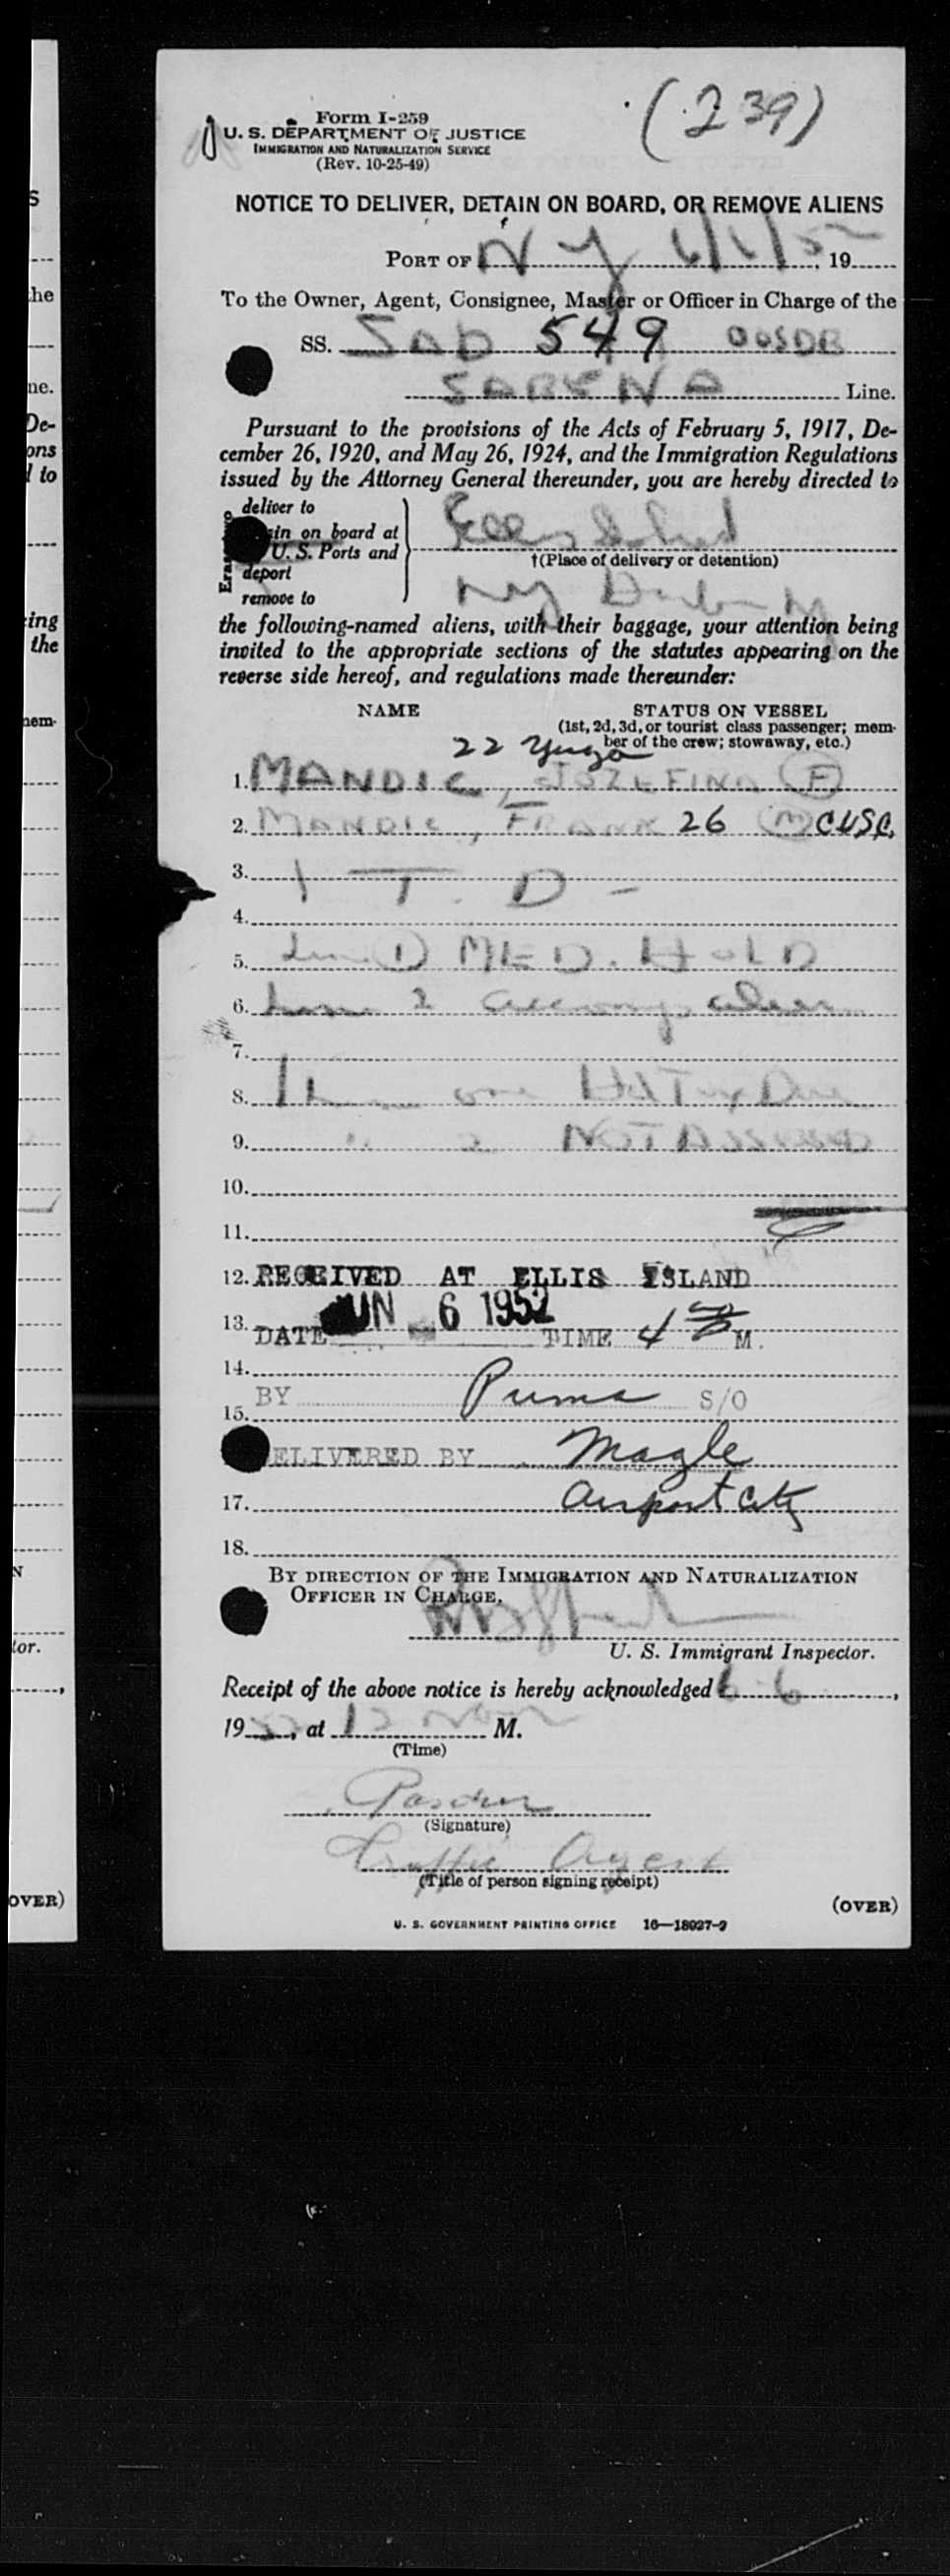 (239)
Form I-259
U. S. DEPARTMENT OF JUSTICE
IMMIGRATION AND NATURALIZATION SERVICE
(Rev. 10-25-49)
NOTICE TO DELIVER, DETAIN ON BOARD, OR REMOVE ALIENS
PORT OF N Y 6/6/52, 19
To the Owner, Agent, Consignee, Master or Officer in Charge of the
SS. SAB 549 OOSDB
SABENA Line.
Pursuant to the provisions of the Acts of February 5, 1917, De-
cember 26, 1920, and May 26, 1924, and the Immigration Regulations
issued by the Attorney General thereunder, you are hereby directed to
deliver to
in on board at
U. S. Ports and
deport
remove to
Ellis Island
†(Place of delivery or detention)
NY Harbor NY
the following-named aliens, with their baggage, your attention being
invited to the appropriate sections of the statutes appearing on the
reverse side hereof, and regulations made thereunder:
NAME STATUS ON VESSEL
(1st, 2d, 3d, or tourist class passenger; mem-
ber of the crew; stowaway, etc.)
22 Yugo
1. MANDIC, JOZEFINA (F)
2. MANDIC, FRANK 26 (M) CUSC.
3. 1 T. D -
4.
5. Line (1) MED. HOLD
6. Line 2 accomp alien
7.
8. Line one Hd Tax Due
9. " " 2 NOT Assessed
10.
11.
12. RECEIVED AT ELLIS ISLAND
13. DATE JUN 6 1952 TIME 4 M.
14.
BY Puma S/O
15.
ELIVERED BY Magle
17. Airport City
18.
BY DIRECTION OF THE IMMIGRATION AND NATURALIZATION
OFFICER IN CHARGE.
U. S. Immigrant Inspector.
Receipt of the above notice is hereby acknowledged 6-6,
1952, at 12 noon M.
(Time)
(Signature)
Traffic Agent
(Title of person signing receipt)
(OVER)
U. S. GOVERNMENT PRINTING OFFICE 16—18027-2